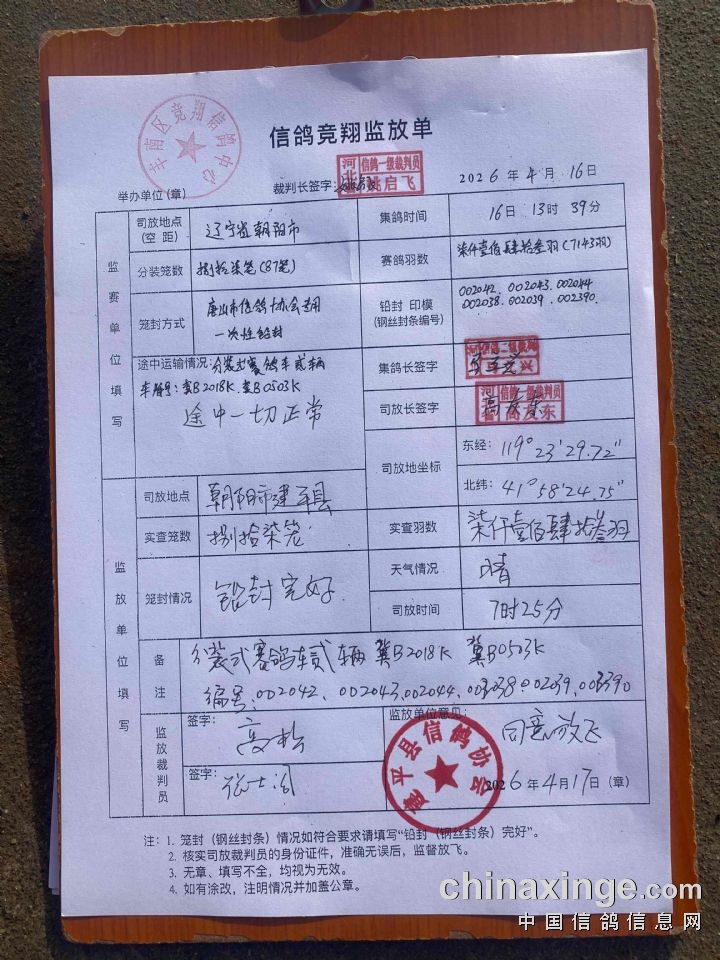 信鸽竞翔监放单
丰南区竞翔信鸽中心
举办单位(章)
裁判长签字:
河北省 信鸽一级裁判员 姚启飞
2026年4月16日
监赛单位填写
司放地点(空距) 辽宁省朝阳市
集鸽时间 16日13时39分
分装笼数 捌拾柒笼(87笼)
赛鸽羽数 柒仟壹佰肆拾叁羽(7143羽)
笼封方式 唐山市信鸽协会专用
一次性铅封
铅封 印模(钢丝封条编号) 002042、002043、002044
002038、002039、002390、
途中运输情况:分装式赛鸽车贰辆
车牌号:冀B2018K、冀B0503K
途中一切正常
集鸽长签字
司放长签字
信鸽一级裁判员 高友东
司放地坐标
东经: 119°23'29.72"
北纬: 41°58'24.75"
监放单位填写
司放地点 朝阳市建平县
实查笼数 捌拾柒笼
实查羽数 柒仟壹佰肆拾叁羽
笼封情况 铅封完好
天气情况 晴
司放时间 7时25分
备注 分装式赛鸽车贰辆 冀B2018K 冀B0503K
编号:002042、002043、002044、003038、002039、003390
监放裁判员
签字: 高松
签字:
监放单位意见:
同意放飞
建平县信鸽协会
2026年4月17日(章)
注: 1. 笼封(钢丝封条)情况如符合要求请填写“铅封(钢丝封条)完好”。
2. 核实司放裁判员的身份证件,准确无误后,监督放飞。
3. 无章、填写不全,均视为无效。
4. 如有涂改,注明情况并加盖公章。
chinaxinge.com
中国信鸽信息网